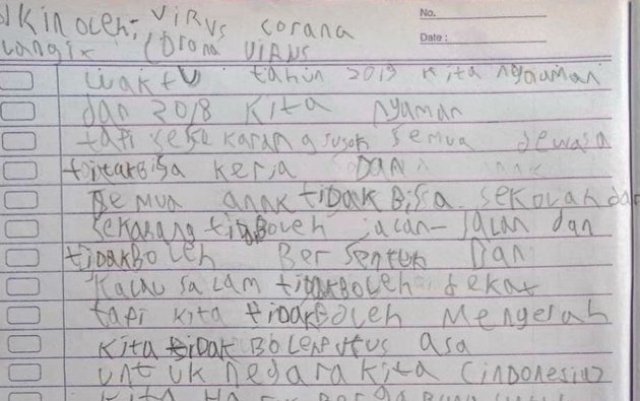 No.
Date :
Dkin oleh: VIRUS corana
Langit Corona VIRUS
waktu tahun 2019 kita ngyaman
dan 2018 KITA nyaman
tapi sekarang susah semua dewasa
tidakbisa kerja DAN
semua anak tiDAK BiSa sekolah dan
sekarang tidBoleh jalan-jalan dan
tiDAKBoleh Bersentuh Dan
Kalau salam tidakBoleh dekat
tapi kita tiDAKBoleh Mengerah
kita tiDak Boleh putus asa
untuk negara kita (indonesia)